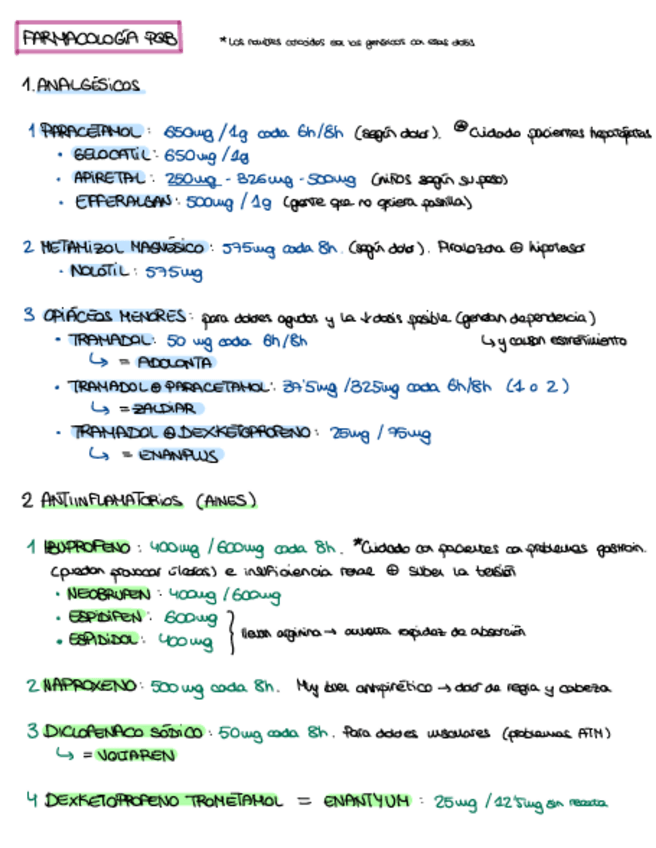 FARMACOLOGÍA PQB
*Los nombres conocidos son los genéricos con esas dosis
1. ANALGÉSICOS
1 PARACETAMOL: 650mg/1g cada 6h/8h (según dolor). ⊕ Cuidado pacientes hepatópatas
• GELOCATIL: 650mg/1g
• APIRETAL: 250mg - 325mg - 500mg (niños según su peso)
• EFFERALGAN: 500mg/1g (gente que no quiera pastilla)
2 METAMIZOL MAGNÉSICO: 575mg cada 8h. (según dolor). Pirazolona ⊕ hipotensor
• NOLOTIL: 575mg
3 OPIÁCEOS MENORES: para dolores agudos y la ↓ dosis posible (generan dependencia)
• TRAMADOL: 50 mg cada 6h/8h ↳ y causan estreñimiento
↳ = ADOLONTA
• TRAMADOL ⊕ PARACETAMOL: 37'5mg/325mg cada 6h/8h (1 o 2)
↳ = ZALDIAR
• TRAMADOL ⊕ DEXKETOPROFENO: 25mg / 75mg
↳ = ENANPLUS
2 ANTIINFLAMATORIOS (AINES)
1 IBUPROFENO: 400mg/600mg cada 8h. *Cuidado con pacientes con problemas gastroin.
(pueden provocar úlceras) e insuficiencia renal ⊕ suben la tensión
• NEOBRUFEN: 400mg/600mg
• ESPIDIFEN: 600mg
• ESPIDIDOL: 400mg } llevan arginina → aumenta rapidez de absorción
2 NAPROXENO: 500mg cada 8h. Muy buen antipirético → dolor de regla y cabeza
3 DICLOFENACO SÓDICO: 50mg cada 8h. Para dolores musculares (problemas ATM)
↳ = VOLTAREN
4 DEXKETOPROFENO TROMETAMOL = ENANTYUM: 25mg/12'5mg sin receta